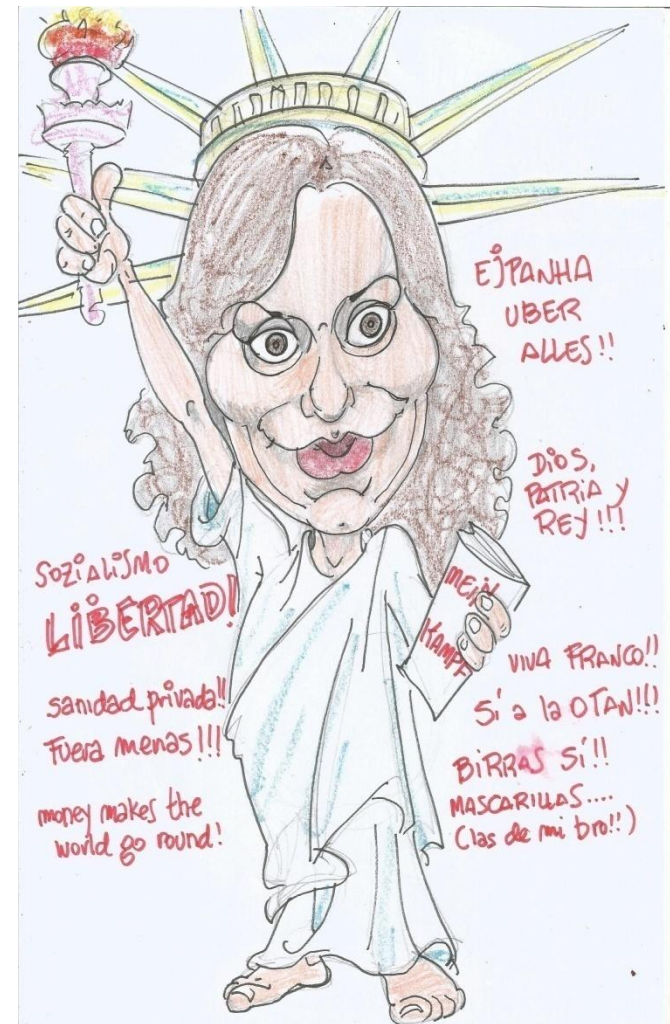 EJPANHA
UBER
ALLES!!
DIOS,
PATRIA Y
REY!!!
SOZIALISMO
LIBERTAD!
MEIN
KAMPF
sanidad privada!!
Fuera menas!!!
money makes the
world go round!
VIVA FRANCO!!
Sí a la OTAN!!!
BIRRAS SÍ!!
MASCARILLAS....
(las de mi bro!!)